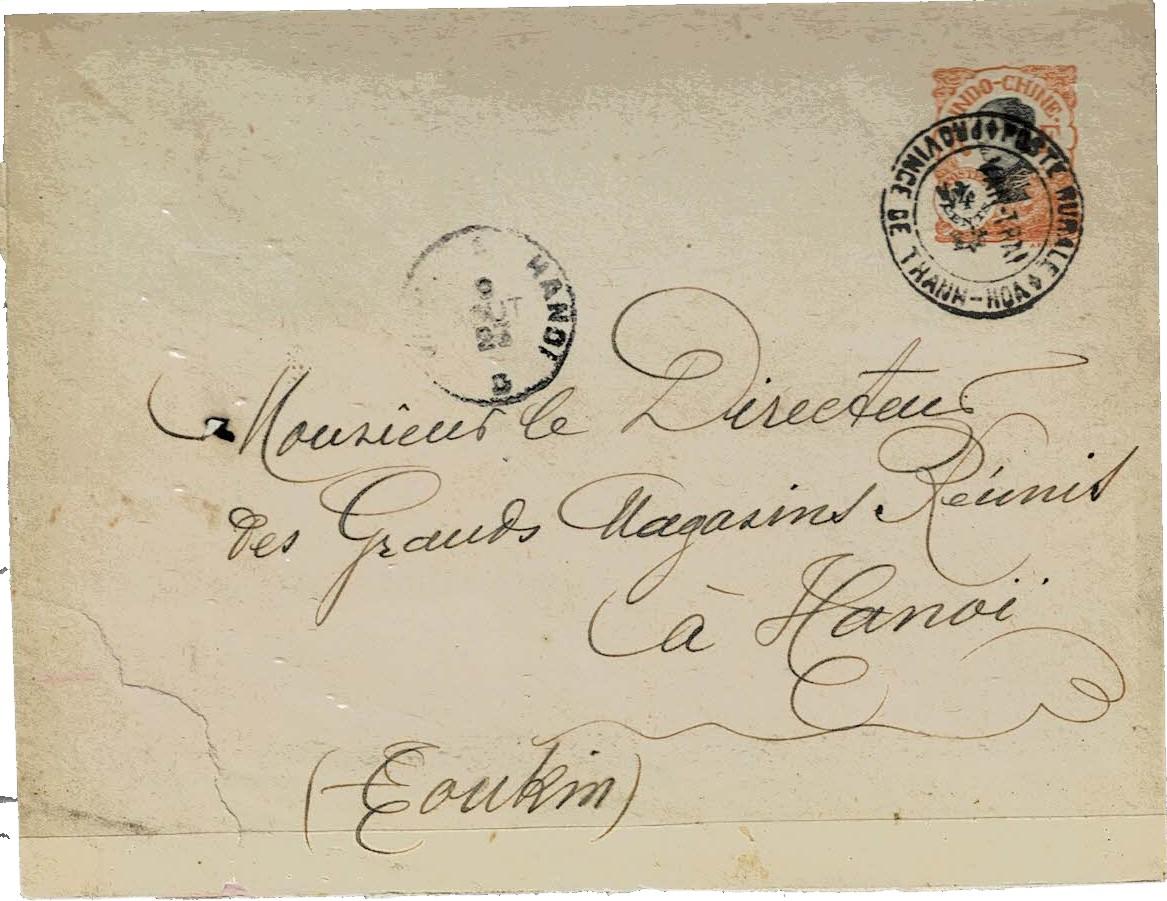 INDO-CHINE
POSTE RURALE
PROVINCE DE THANH-HOA
4
CENTS
HANOI
Monsieur le Directeur
des Grands Magasins Réunis
à Hanoï
(Tonkin)